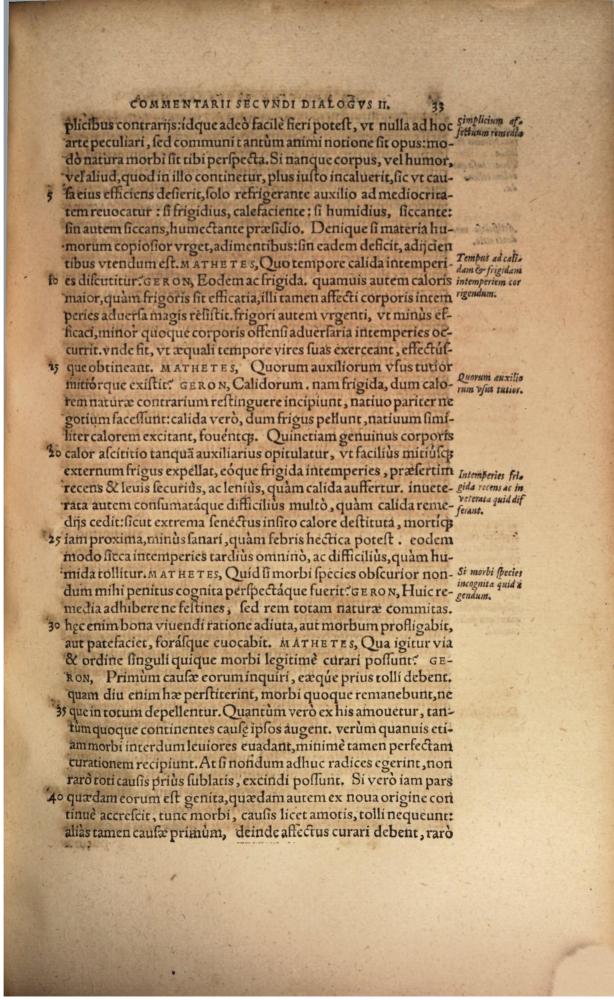 COMMENTARII SECVNDI DIALOGVS II. 33
plicibus contrarijs: idque adeò facilè fieri potest, vt nulla ad hoc
arte peculiari, sed communi tantùm animi notione sit opus: mo-
dò natura morbi sit tibi perspecta. Si nanque corpus, vel humor,
vel aliud, quod in illo continetur, plus iusto incaluerit, sic vt cau-
5 sa eius efficiens desierit, solo refrigerante auxilio ad mediocrita-
tem reuocatur: si frigidius, calefaciente: si humidius, siccante:
sin autem siccans, humectante præsidio. Denique si materia hu-
morum copiosior vrget, adimentibus: sin eadem deficit, adijcien
tibus vtendum est. MATHETES, Quo tempore calida intemperi-
10 es discutitur? GERON, Eodem ac frigida. quamuis autem caloris
maior, quàm frigoris sit efficatia, illi tamen affecti corporis intem
peries aduersa magis resistit. frigori autem vrgenti, vt minus ef-
ficaci, minor quoque corporis offensi aduersaria intemperies oc-
currit. vnde fit, vt æquali tempore vires suas exerceant, effectús-
15 que obtineant. MATHETES, Quorum auxiliorum vsus tutior
mitiórque existit? GERON, Calidorum. nam frigida, dum calo-
rem naturæ contrarium restinguere incipiunt, natiuo pariter ne
gotium facessunt: calida verò, dum frigus pellunt, natiuum simi-
liter calorem excitant, fouéntq;. Quinetiam genuinus corporis
20 calor ascititio tanquã auxiliarius opitulatur, vt facilius mitiúsq;
externum frigus expellat, eóque frigida intemperies, præsertim
recens & leuis securiùs, ac leniùs, quàm calida auffertur. inuete-
rata autem consumatáque difficilius multò, quàm calida reme-
dijs cedit: sicut extrema senéctus insito calore destituta, mortíq;
25 iam proxima, minùs sanari, quàm febris hectica potest. eodem
modo sicca intemperies tardius omninò, ac difficilius, quàm hu-
mida tollitur. MATHETES, Quid si morbi species obscurior non-
dum mihi penitus cognita perspectáque fuerit? GERON, Huic re-
media adhibere ne festines, sed rem totam naturæ commitas.
30 hęc enim bona viuendi ratione adiuta, aut morbum profligabit,
aut patefaciet, forásque euocabit. MATHETES, Qua igitur via
& ordine singuli quique morbi legitimè curari possunt? GE-
RON, Primum causæ eorum inquiri, eæque prius tolli debent.
quam diu enim hæ perstiterint, morbi quoque remanebunt, ne
35 que in totum depellentur. Quantùm verò ex his amouetur, tan-
tùm quoque continentes causę ipsos augent. verùm quanuis eti-
am morbi interdum leuiores euadant, minimè tamen perfectam
curationem recipiunt. At si nondum adhuc radices egerint, non
rarò toti causis prius sublatis, excindi possunt. Si verò iam pars
40 quædam eorum est genita, quædam autem ex noua origine con
tinuè accrescit, tunc morbi, causis licet amotis, tolli nequeunt:
aliàs tamen causæ primùm, deinde affectus curari debent, rarò
Simplicium af-
fectuum remedia
Tempus ad cali-
dam & frigidam
intemperiem cor
rigendum.
Quorum auxilio
rum vsus tutior.
Intemperies fri-
gida recens ac in
veterata quid dif
ferant.
Si morbi species
incognita quid a
gendum.